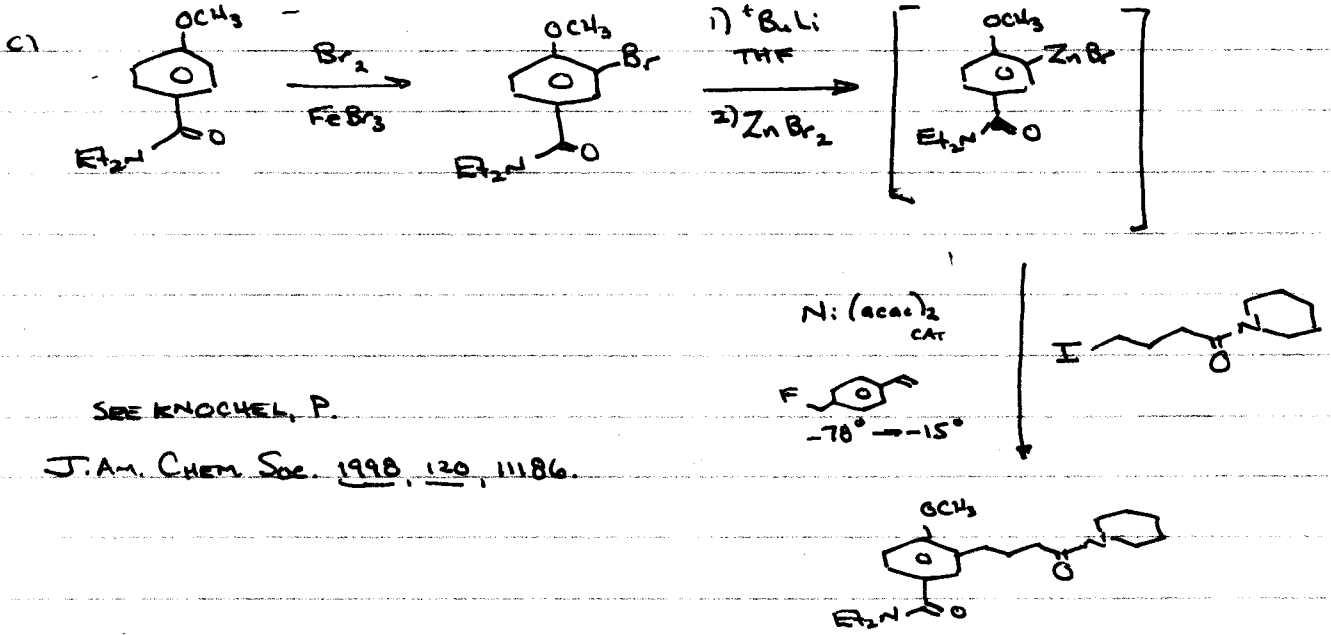 c)
OCH₃
Et₂N
O
Br₂
FeBr₃
OCH₃
Br
Et₂N
O
1) ᵗBuLi
THF
2) ZnBr₂
OCH₃
ZnBr
Et₂N
O
Ni(acac)₂
CAT
F
-78° → -15°
I
N
O
SEE KNOCHEL, P.
J. Am. CHEM Soc. 1998, 120, 11186.
OCH₃
N
O
Et₂N
O